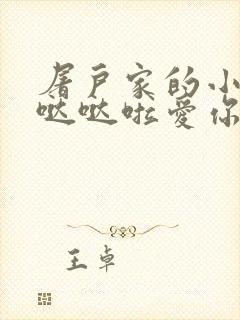 屠户家的小
哒哒啦爱你
王卓